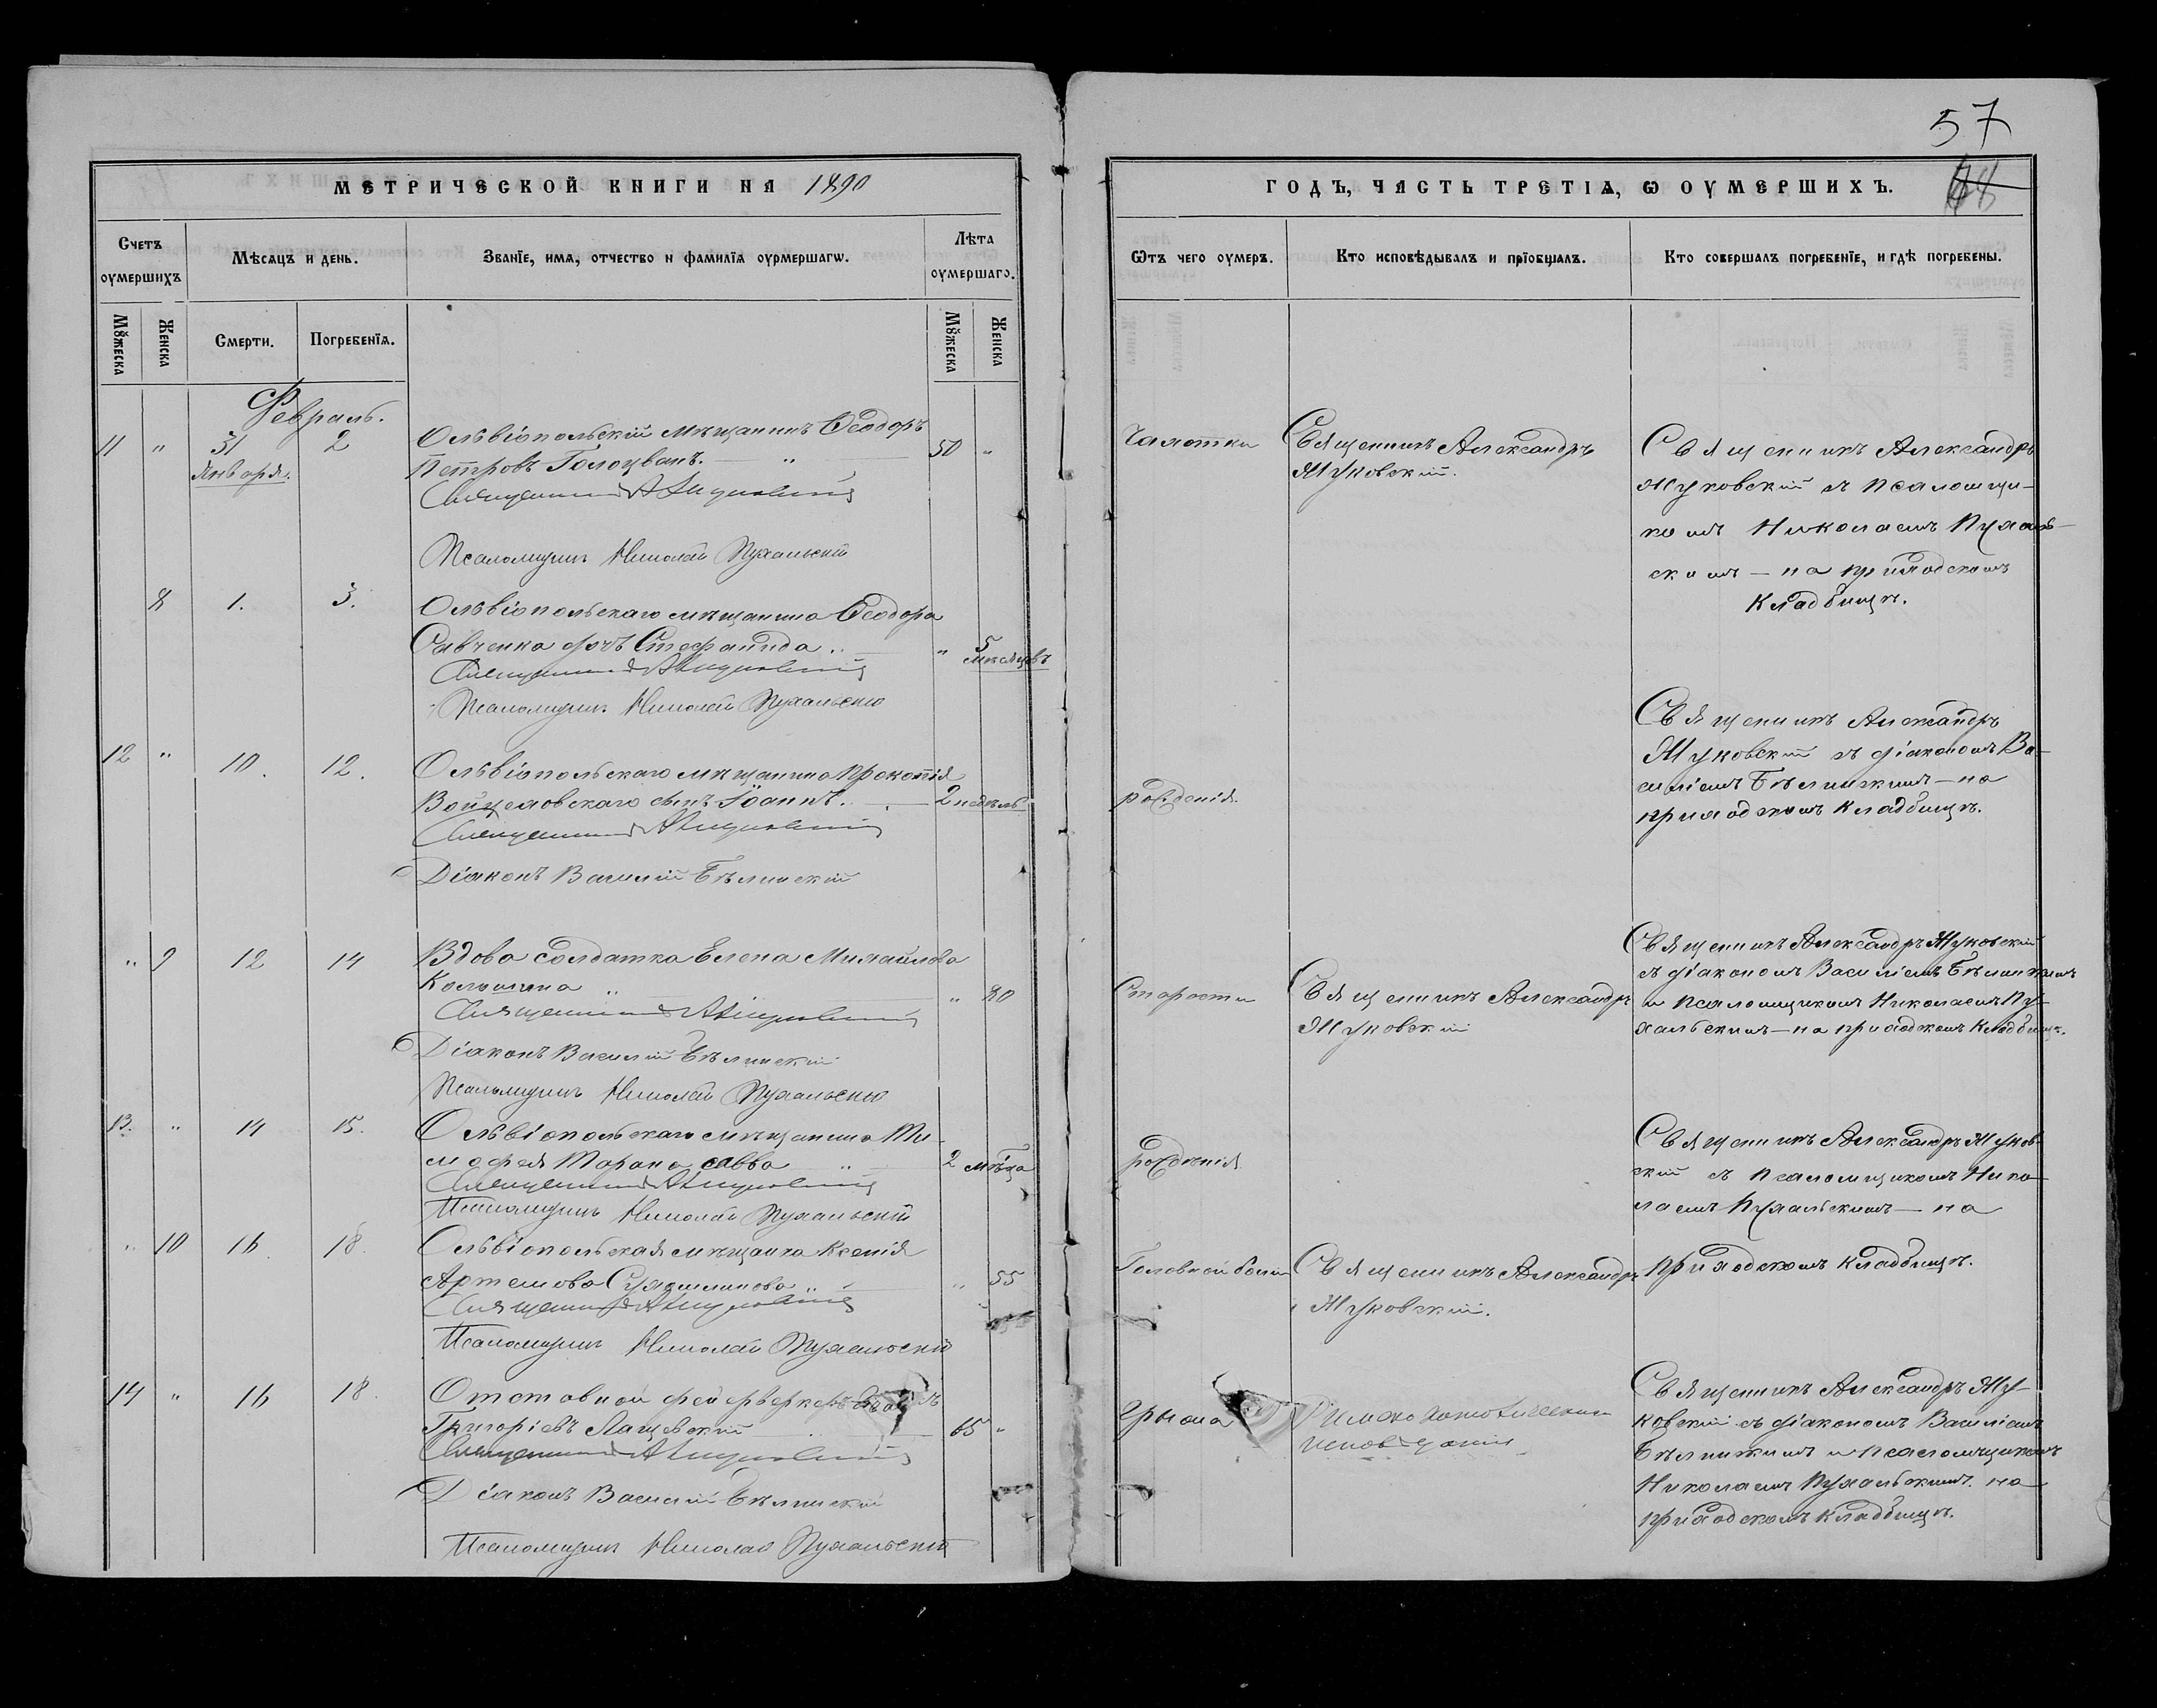 57
МЕТРИЧЕСКОЙ КНИГИ НА 1890
ГОДЪ, ЧАСТЬ ТРЕТІѦ, Ѡ ОУМЕРШИХЪ.
Счетъ оумершихъ
Мѣсѧцъ и день.
Званїе, имѧ, отчество и фамилїѧ оурмершагѡ.
Лѣта оумершаго.
Мꙋжеска
Женска
Смерти.
Погребенїѧ.
Мꙋжеска
Женска
Ѿтъ чего оумеръ.
Кто исповѣдывалъ и прїобщалъ.
Кто совершалъ погребенїе, и гдѣ погребены.
Февраль.
11 " 31 Января. 2
Ольвіопольскій мѣщанинъ Ѳеодоръ
Петровъ Голоцванъ. "
50 "
Священникъ А Жуковскій
Псаломщикъ Николай Пухальскій
Чахотки
Священникъ Александръ
Жуковскій.
Священникъ Александръ
Жуковскій съ псаломщи-
комъ Николаемъ Пухаль-
скимъ — на приходскомъ
кладбищѣ.
8 1. 3.
Ольвіопольскаго мѣщанина Ѳеодора
Савченка дочь Стефанида "
" 5 мѣсяцевъ
Священникъ А Жуковскій
Псаломщикъ Николай Пухальскій
12 " 10. 12.
Ольвіопольскаго мѣщанина Прокопія
сынъ Іоаннъ.
2 недѣль
Священникъ А Жуковскій
Діаконъ Василій Бѣлинскій
рожденія
Священникъ Александръ
Жуковскій съ діакономъ Ва-
силіемъ Бѣлинскимъ — на
приходскомъ кладбищѣ.
" 9 12 14
Вдова солдатка Елена Михайлова
"
" 80
Священникъ А Жуковскій
Діаконъ Василій Бѣлинскій
Псаломщикъ Николай Пухальскій
Старости
Священникъ Александръ
Жуковскій
Священникъ Александръ Жуковскій
съ діакономъ Василіемъ Бѣлинскимъ
и псаломщикомъ Николаемъ Пу-
хальскимъ — на приходскомъ кладбищѣ.
13. " 14 15.
Ольвіопольскаго мѣщанина Ти-
мофея Тарана Савва "
2 мѣсца
Священникъ А Жуковскій
Псаломщикъ Николай Пухальскій
рожденія
Священникъ Александръ Жуков-
скій съ псаломщикомъ Нико-
лаемъ Пухальскимъ — на
приходскомъ кладбищѣ.
" 10 16. 18.
Ольвіопольская мѣщанка Ксенія
Артемова "
" 55
Священникъ А Жуковскій
Псаломщикъ Николай Пухальскій
Головной боли
Священникъ Александръ
Жуковскій.
14 " 16 18.
Отставной фейерверкеръ
Григоріевъ Лащевскій
65 "
Священникъ А Жуковскій
Діаконъ Василій Бѣлинскій
Псаломщикъ Николай Пухальскій
Грыжа
Римско католическаго
исповеданія
Священникъ Александръ Жу-
ковскій съ діакономъ Василіемъ
Бѣлинскимъ и псаломщикомъ
Николаемъ Пухальскимъ. на
приходскомъ кладбищѣ.